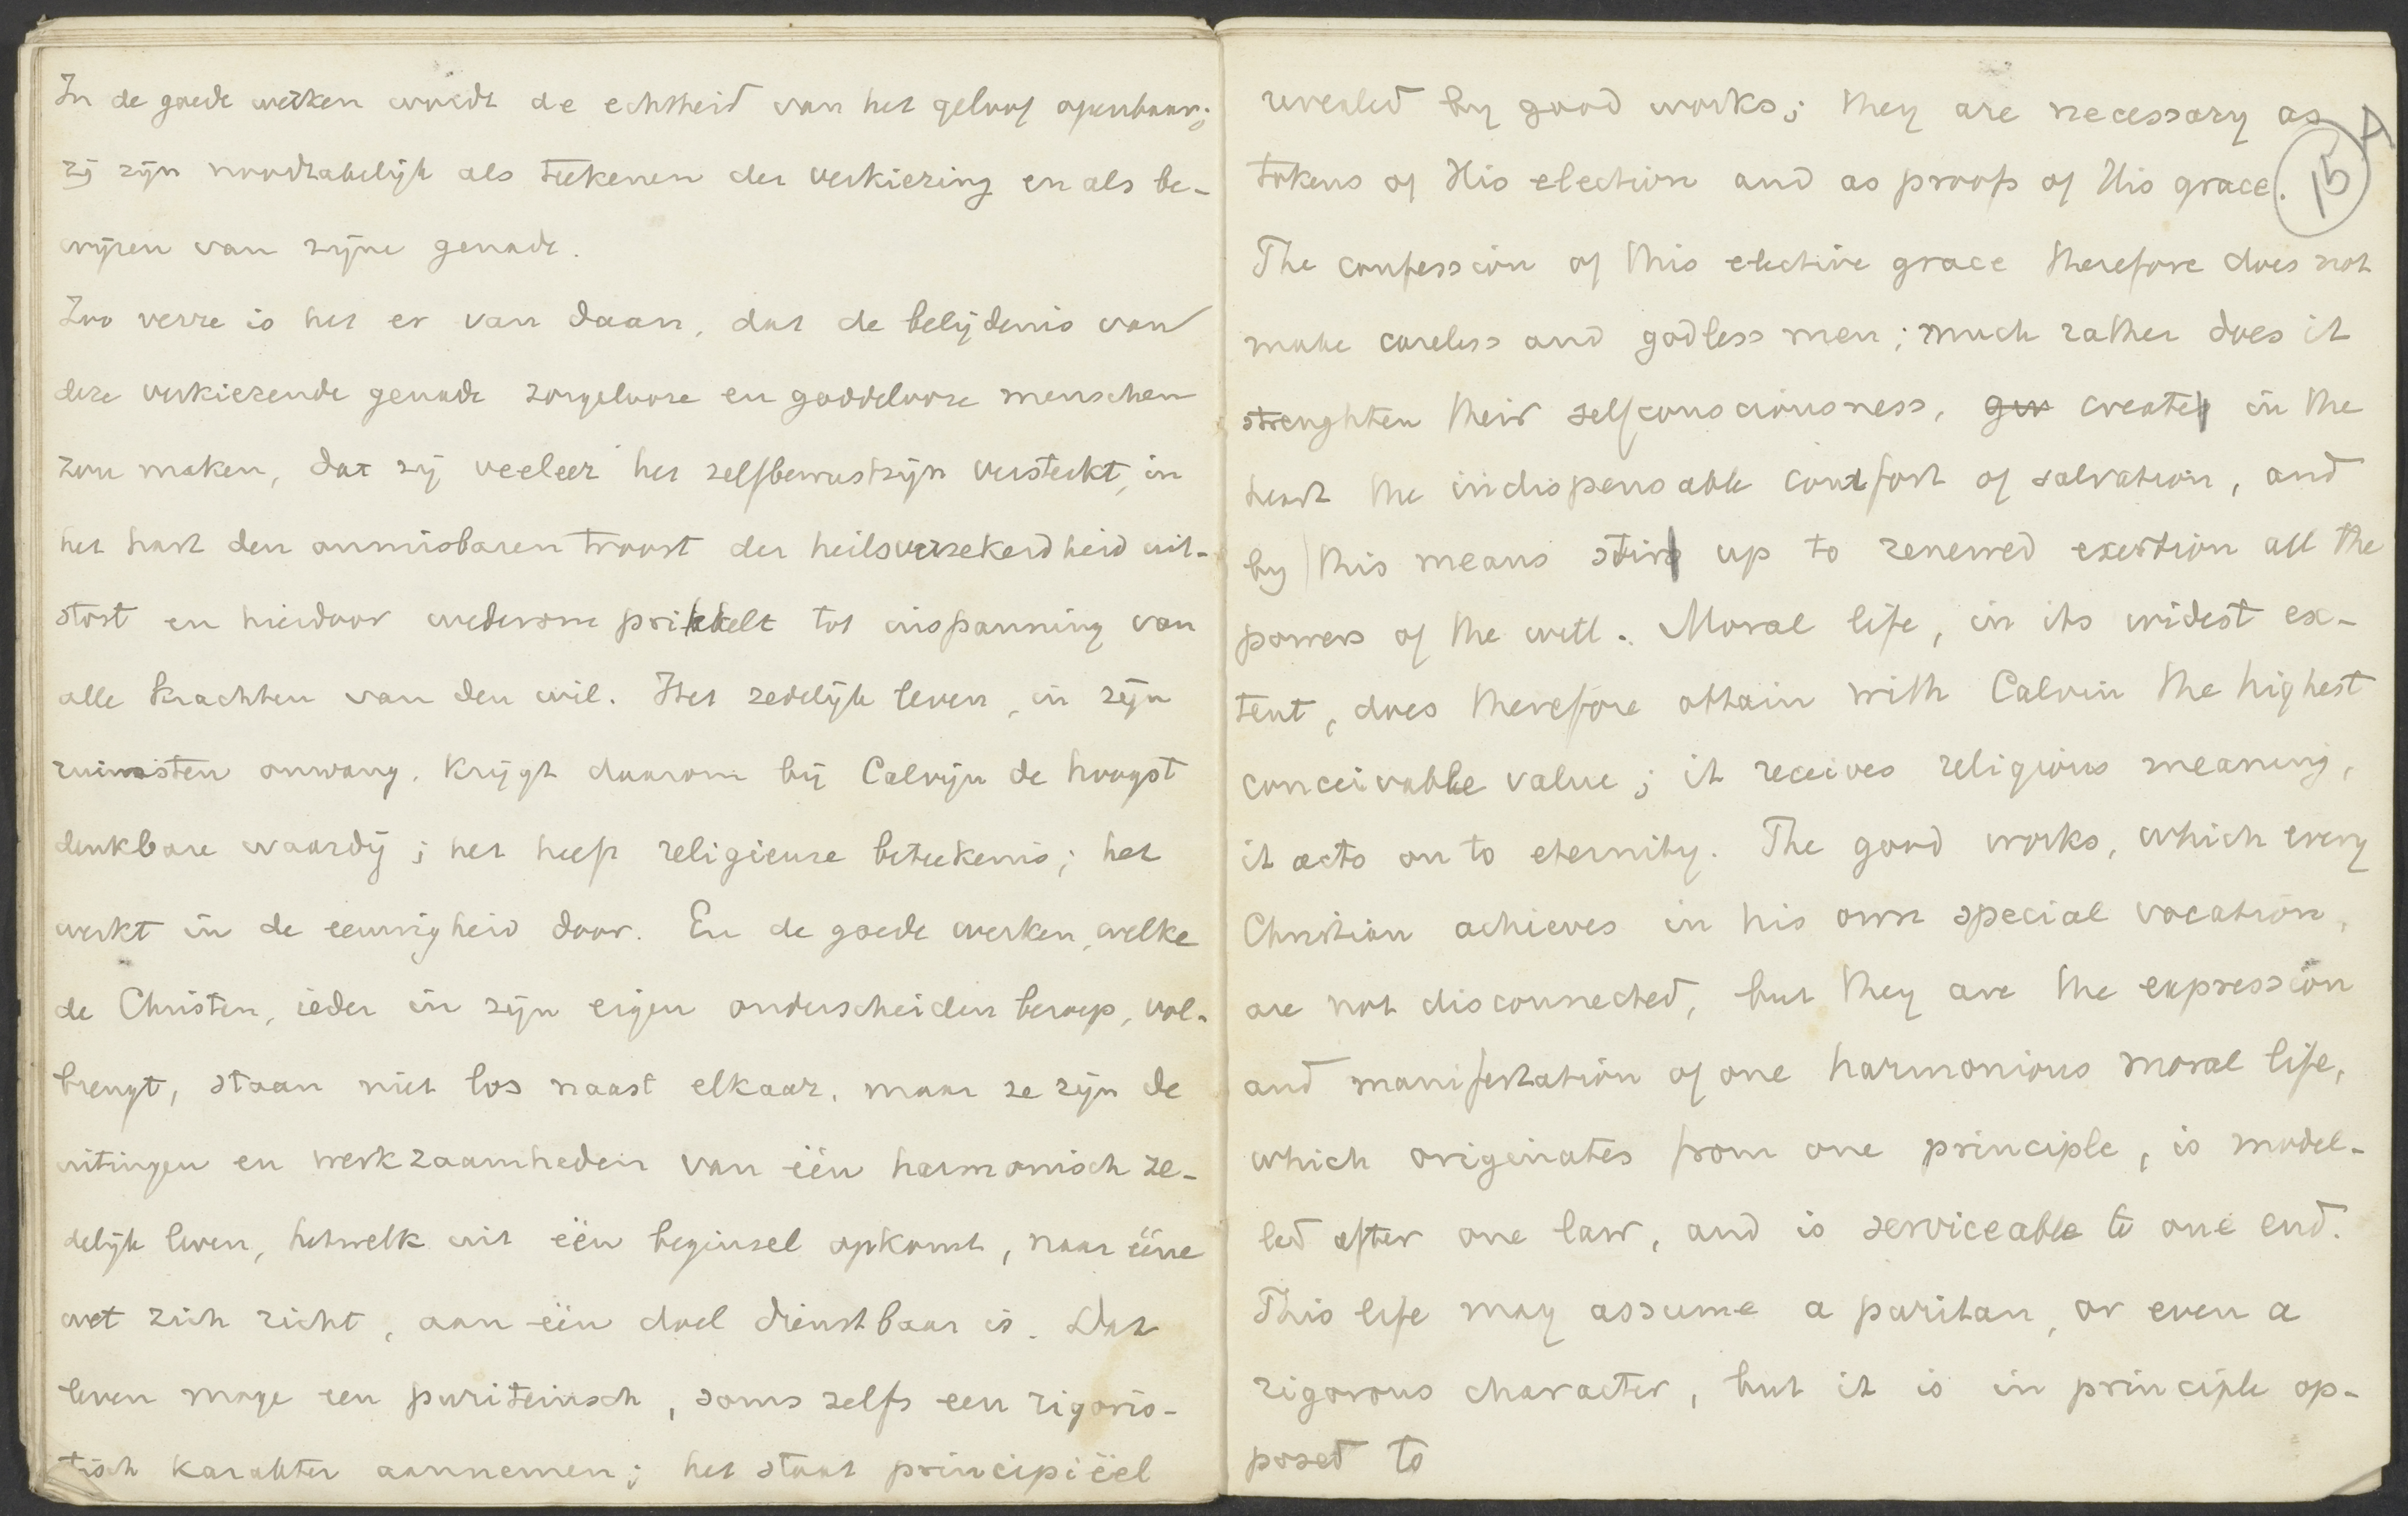 In de goede werken wordt de echtheid van het geloof openbaar;
zij zijn noodzakelijk als teekenen der verkiezing en als be-
wijzen van zijne genade.
Zoo verre is het er van daan, dat de belijdenis van
deze verkiezende genade zorgelooze en goddelooze menschen
zou maken, dat zij veeleer het zelfbewustzijn versterkt, in
het hart den onmisbaren troost der heilsverzekerdheid uit-
stort en hierdoor wederom prikkelt tot inspanning van
alle krachten van den wil. Het zedelijk leven, in zijn
ruimsten omvang, krijgt daarom bij Calvijn de hoogst
denkbare waardij; het heeft religieuze beteekenis; het
werkt in de eeuwigheid door. En de goede werken, welke
de Christen, ieder in zijn eigen onderscheiden beroep, vol-
brengt, staan niet los naast elkaar, maar ze zijn de
uitingen en werkzaamheden van één harmonisch ze-
delijk leven, hetwelk uit één beginsel opkomt, naar ééne
wet zich richt, aan één doel dienstbaar is. Dat
leven moge een puriteinsch, soms zelfs een rigoris-
tisch karakter aannemen; het staat principiëel
revealed by good works; they are necessary as
tokens of His election and as proofs of His grace.
15 A
The confession of this elective grace therefore does not
make careless and godless men; much rather does it
strenghten their selfconsciousness, giv create in the
heart the indispensable comfort of salvation, and
by this means stir up to renewed exertion all the
powers of the will. Moral life, in its widest ex-
tent, does therefore attain with Calvin the highest
conceivable value; it receives religious meaning,
it acts on to eternity. The good works, which every
Christian achieves in his own special vocation,
are not disconnected, but they are the expression
and manifestation of one harmonious moral life,
which originates from one principle, is model-
led after one law, and is serviceable to one end.
This life may assume a puritan, or even a
rigorous character, but it is in principle op-
posed to